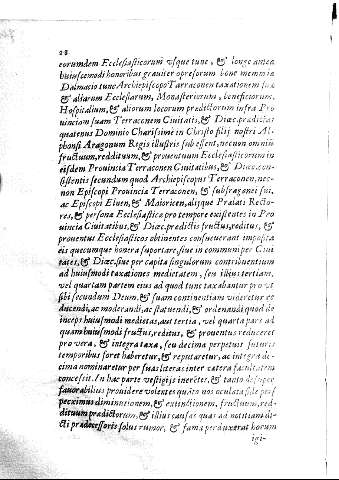 28
eorumdem Ecclesiasticorum vsque tunc, & longe antea
huiuscemodi honoribus grauiter opresorum bone memmia
Dalmasio tunc Archiepiscopo Tarraconen taxationem
& aliarum Ecclesiarum, Monasteriorum, beneficiorum,
Hospitalium, & aliorum locorum predictorum infra Pro
uinciam suam Terraconen Ciuitatis, & Diœc. predictas
quatenus Dominio Charissimi in Christo filij nostri Al-
phonsi Aragonum Regis illustris subessent, necnon omniũ
fructuum, redditum, & prouentuum Ecclesiasticorum in
eisdem Prouincia Terraconen Ciuitatibus, & Diœc. con-
sistentis secundum quod Archiepiscopus Terraconen, nec-
non Episcopi Prouincia Terraconen, & sufraganei sui,
ac Episcopi Elnen, & Maioricen, alique Pralati Recto-
res, & persona Ecclesiastica pro tempore existentes in Pro
uincia Ciuitatibus, & Diœc. predictis fructus, reditus, &
prouentus Ecclesiasticos obtinentes consueuerant imposita
eis quecumque honera suportare, siue in communi per Ciui
tates, & Diœc, siue per capita singulorum contribuentium
ad huiusmodi taxationes medietatem, seu illius tertiam,
vel quartam partem eius ad quod tunc taxabantur pro vt
sibi secundum Deum, & suam conscientiam videretur re
ducendi, ac moderandi, ac statuendi, & ordenandi quod de
inceps huiusmodi medietas, aut tertia, vel quarta pars ad
quam huiusmodi fructus, reditus, & prouentus reduceret
pro vera, & integra taxa, seu decima perpetuis futuris
temporibus foret haberetur, & reputaretur, ac integra de-
cima nominaretur per suas literas inter catera facultatem
concessit. In hac parte vestigijs ineretes, & tanto
fauorabilius prouidere volentes quanto nos oculata fide prof
peximus diminutionem, & extinctionem, fructuum, red-
dituum predictorum, & illius causas quas ad notitiam di-
cti pradecessoris solus rumor, & fama perduxerat horum
igi-